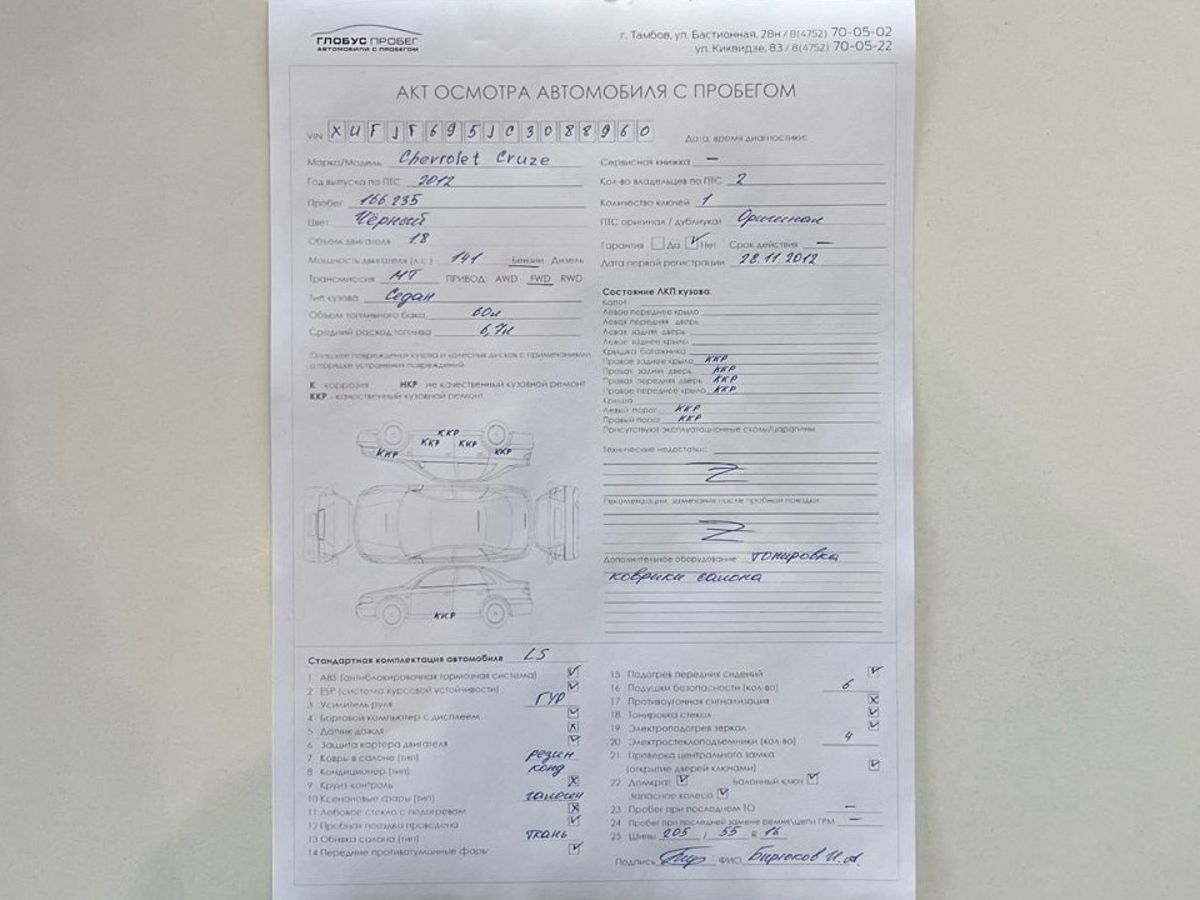 ГЛОБУС ПРОБЕГ
АВТОМОБИЛИ С ПРОБЕГОМ
г. Тамбов, ул. Бастионная, 28н / 8(4752) 70-05-02
ул. Киквидзе, 83 / 8(4752) 70-05-22
АКТ ОСМОТРА АВТОМОБИЛЯ С ПРОБЕГОМ
VIN XUFJF695JC3088960
Дата, время диагностики:
Марка/Модель Chevrolet Cruze
Год выпуска по ПТС 2012
Пробег 166.235
Цвет Чёрный
Объем двигателя 1.8
Мощность двигателя (л.с.) 141 Бензин Дизель
Трансмиссия МТ ПРИВОД: AWD FWD RWD
Тип кузова Седан
Объем топливного бака 60л
Средний расход топлива 6,7л
Опишите повреждения кузова и колесных дисков с примечаниями
о порядке устранения повреждений
К коррозия НКР не качественный кузовной ремонт
ККР - качественный кузовной ремонт
ККР
ККР ККР
ККР ККР
ККР
Сервисная книжка —
Кол-во владельцев по ПТС 2
Количество ключей 1
ПТС оригинал / дубликат Оригинал
Гарантия Да Нет Срок действия —
Дата первой регистрации 28.11.2012
Состояние ЛКП кузова:
Капот
Левое переднее крыло
Левая передняя дверь
Левая задняя дверь
Левое заднее крыло
Крышка багажника
Правое заднее крыло ККР
Правая задняя дверь ККР
Правая передняя дверь ККР
Правое переднее крыло ККР
Крыша
Левый порог ККР
Правый порог ККР
Присутствуют эксплуатационные сколы/царапины
Технические недостатки:
Z
Рекомендации, замечания после пробной поездки:
Z
Дополнительное оборудование тонировка
коврики салона
Стандартная комплектация автомобиля LS
1 ABS (антиблокировочная тормозная система)
2 ESP (система курсовой устойчивости)
3 Усилитель руля ГУР
4 Бортовой компьютер с дисплеем
5 Датчик дождя
6 Защита картера двигателя
7 Ковры в салоне (тип) резин
8 Кондиционер (тип) конд
9 Круиз контроль
10 Ксеноновые фары (тип) галоген
11 Лобовое стекло с подогревом
12 Пробная поездка проведена
13 Обивка салона (тип) ткань
14 Передние противотуманные фары
15 Подогрев передних сидений
16 Подушки безопасности (кол-во) 6
17 Противоугонная сигнализация
18 Тонировка стекол
19 Электроподогрев зеркал
20 Электростеклоподъемники (кол-во) 4
21 Проверка центрального замка
(открытие дверей ключами)
22 Домкрат Балонный ключ
Запасное колесо
23 Пробег при последнем ТО —
24 Пробег при последней замене ремня\цепи ГРМ —
25 Шины 205 / 55 R 16
Подпись ФИО Бирюков И.А.